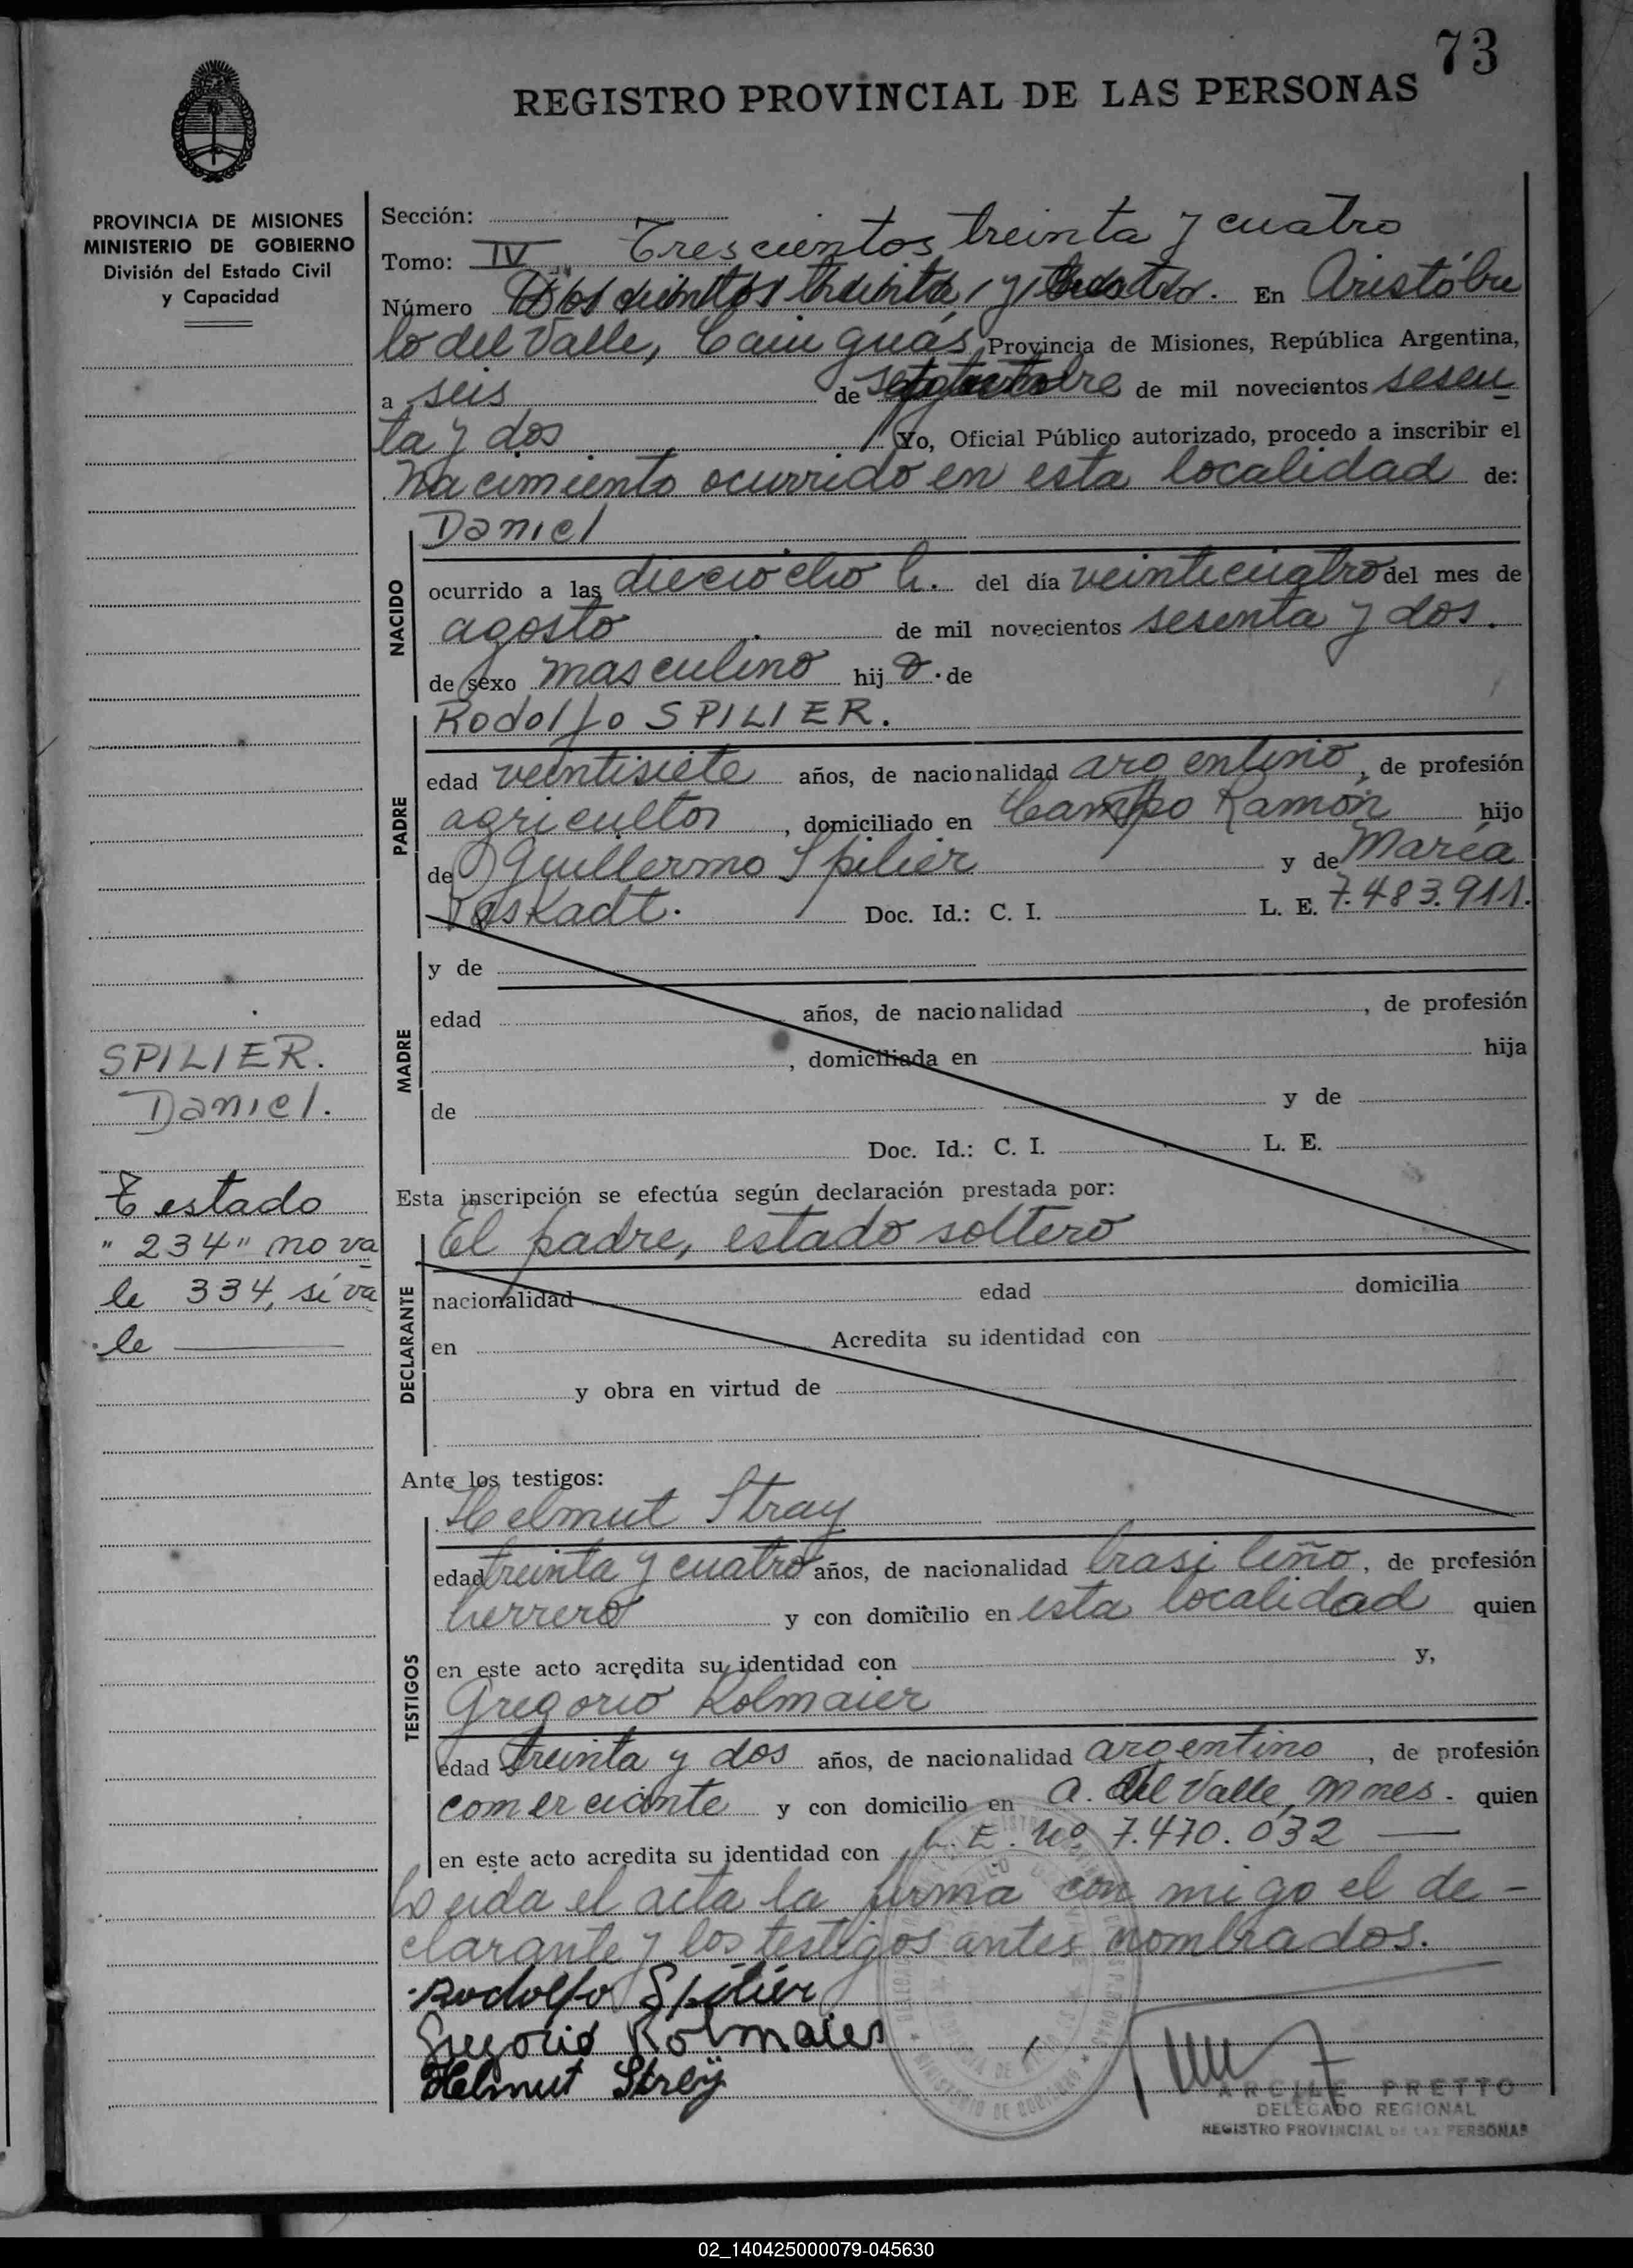 73
REGISTRO PROVINCIAL DE LAS PERSONAS
PROVINCIA DE MISIONES
MINISTERIO DE GOBIERNO
División del Estado Civil
y Capacidad
Sección:
Trescientos treinta y cuatro
Tomo: IV
Número Doscientos treinta y cuatro. En Aristóbu
lo del Valle, Cain guás, Provincia de Misiones, República Argentina,
a seis de de mil novecientos sesen
ta y dos Yo, Oficial Público autorizado, procedo a inscribir el
nacimiento ocurrido en esta localidad de:
NACIDO
Daniel
ocurrido a las dieciocho h. del día veinticuatro del mes de
agosto de mil novecientos sesenta y dos.
de sexo masculino hijo. de
PADRE
Rodolfo SPILIER.
edad veintisiete años, de nacionalidad argentino, de profesión
agricultor, domiciliado en Campo Ramón hijo
de Guillermo Spilier y de María
Doc. Id.: C. I. L. E. 7.483.911.
MADRE
y de
edad años, de nacionalidad , de profesión
, domiciliada en hija
de y de
Doc. Id.: C. I. L. E.
SPILIER.
Daniel.
Testado
"234" no va
le 334, sí va
le
Esta inscripción se efectúa según declaración prestada por:
DECLARANTE
El padre, estado soltero
nacionalidad edad domicilia
en Acredita su identidad con
y obra en virtud de
Ante los testigos:
TESTIGOS
Helmut Stray
edad treinta y cuatro años, de nacionalidad brasileño, de profesión
herrero y con domicilio en esta localidad quien
en este acto acredita su identidad con y,
Gregorio Rolmaier
edad treinta y dos años, de nacionalidad argentino, de profesión
comerciante y con domicilio en A. del Valle, Mnes. quien
en este acto acredita su identidad con L. E. Nº 7.470.032
Leida el acta la firma con migo el de-
clarante y los testigos antes nombrados.
Rodolfo Spilier
Gregorio Rolmaier
Helmut Strey
ARCILE PRETTO
DELEGADO REGIONAL
REGISTRO PROVINCIAL DE LAS PERSONAS
MINISTERIO DE GOBIERNO
02_140425000079-045630